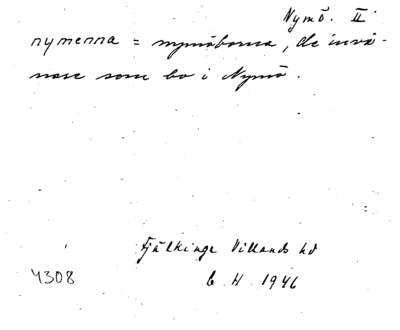 Nymö. II
nymenna = nymöborna, de invå-
nare som bo i Nymö.
Fjälkinge Villands hd
4308
G. H. 1946